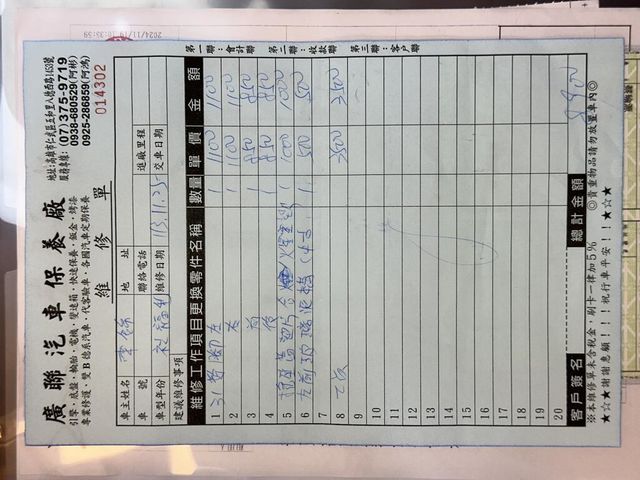 2024/11/19 10:35:59
廣聯汽車保養廠
引擎・底盤・輪胎・電機・變速箱・快速保養・鈑金・烤漆
專業修護、雙B德系汽車・代客驗車・各國汽車定期保養
地址:高雄市仁武區五和里八德西路163號
服務專線:(07)375-9719
0938-680529(阿彬)
0925-286859(阿鴻)
維修單
014302
車主姓名 李 地址
車號 聯絡電話 進廠里程
車型年份 福利 維修日期 113.11.25 交車日期
建議維修事項
維修工作項目更換零件名稱 數量 單價 金額
1 左 1 1100 1100
2 右 1 1100 1100
3 前 1 850 850
4 後 1 850 850
5 1 1000 1000
6 左前 1 500 500
7
8 工資 3500 3500
9
10
11
12
13
14
15
16
17
18
19
20
客戶簽名 總計金額 8900
※本維修單未含稅金,刷卡一律加5% ◎貴重物品請勿放置車內◎
★☆★謝謝惠顧!!!祝行車平安!!★☆★
第一聯:會計聯 第二聯:收款聯 第三聯:客戶聯